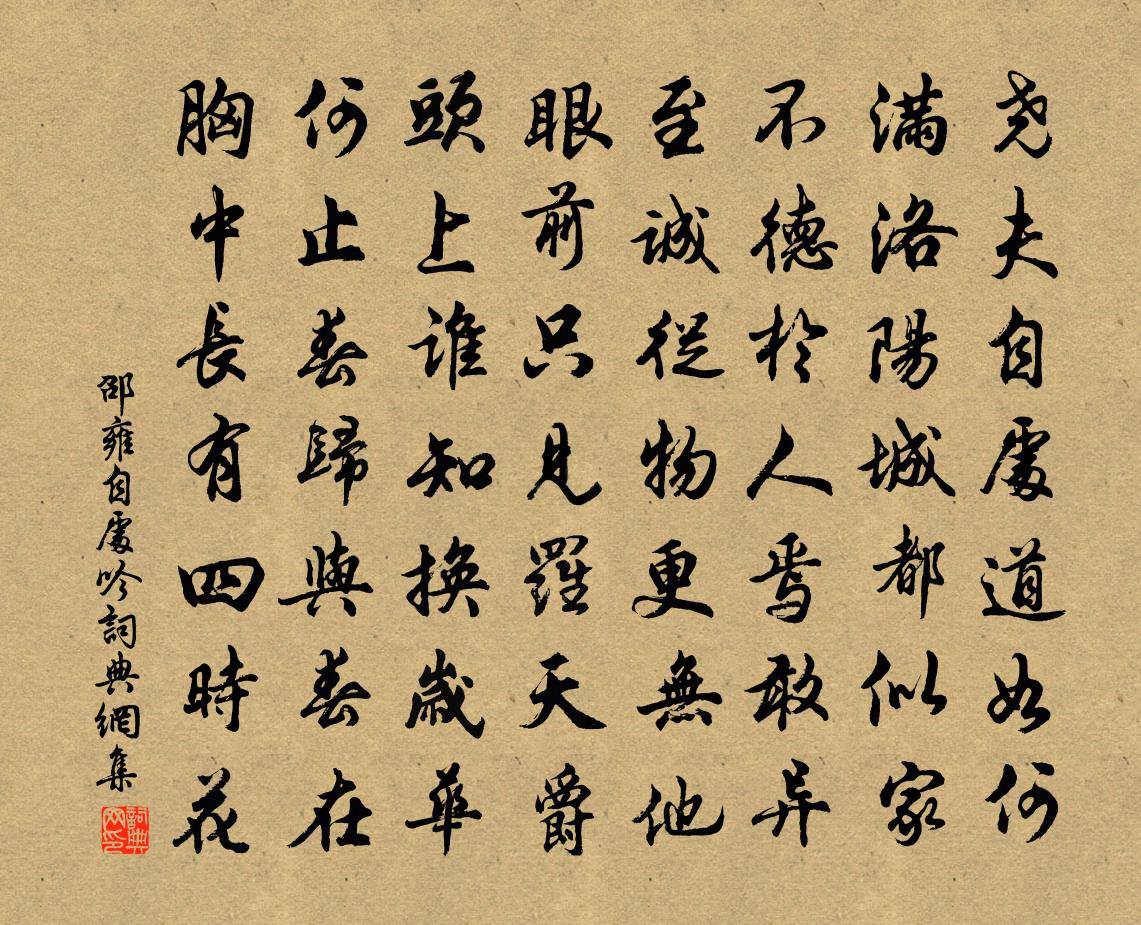 尧夫自處道如何
滿洛陽城都似家
不德於人焉敢异
至誠從物更無他
眼前只見羅天爵
頭上誰知換歲華
何止春歸與春在
胸中長有四時花
邵雍自處吟詞典網集
詞典网印